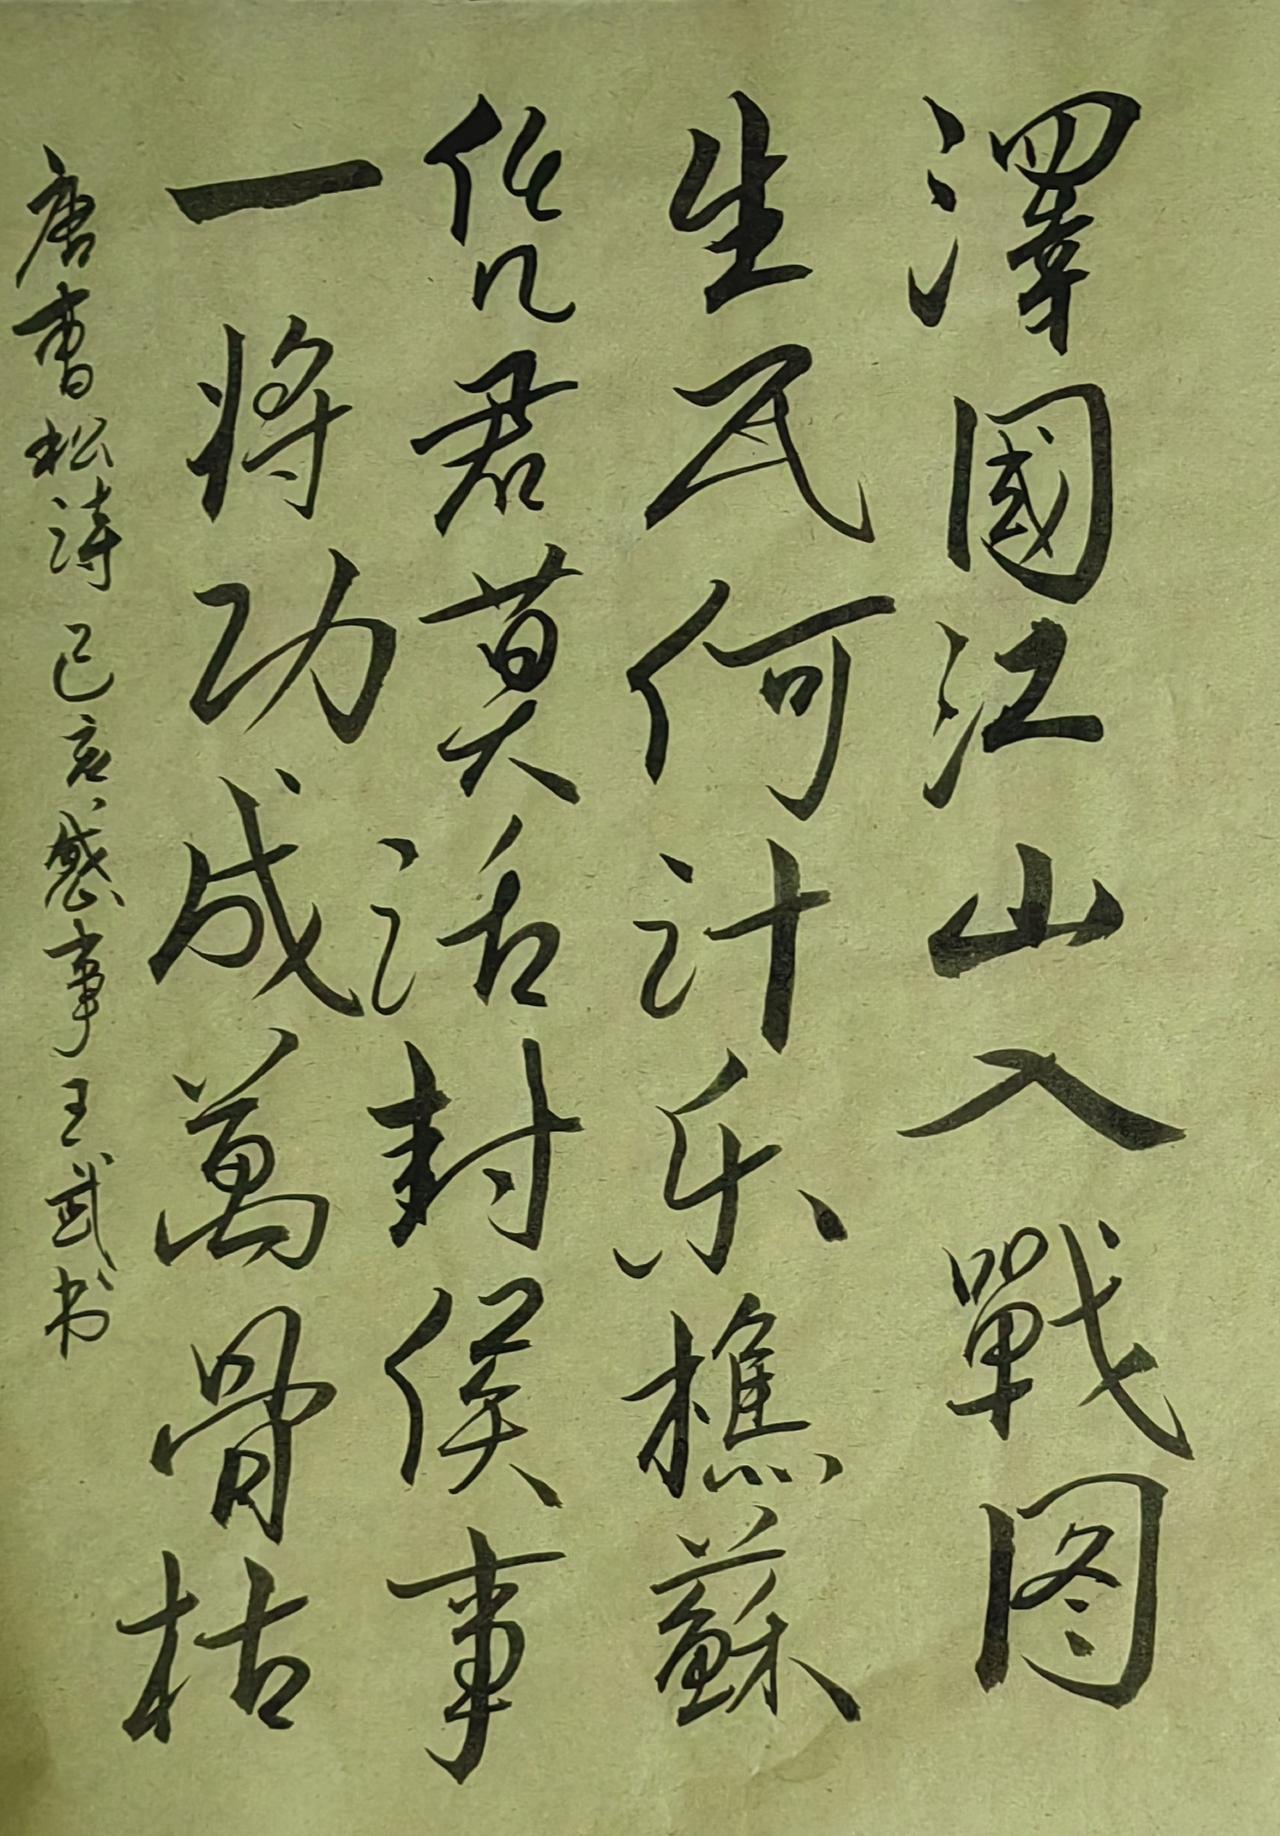 澤國江山入戰图
生民何计乐樵蘇
凭君莫话封侯事
一将功成萬骨枯
唐曹松诗己亥感事王武书